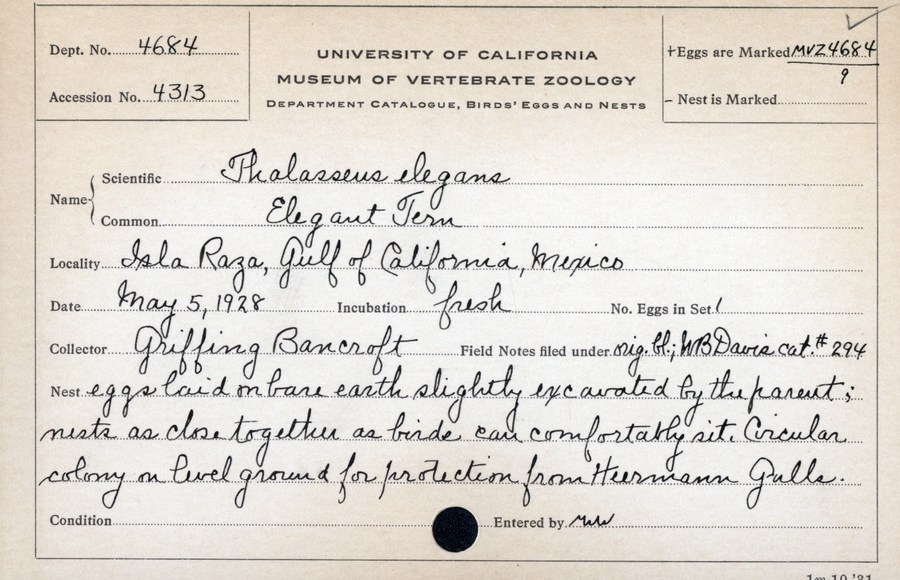 Dept. No. 4684
Accession No. 4313
UNIVERSITY OF CALIFORNIA
MUSEUM OF VERTEBRATE ZOOLOGY
DEPARTMENT CATALOGUE, BIRDS' EGGS AND NESTS
+Eggs are Marked MVZ4684
9
– Nest is Marked
Name
Scientific Thalasseus elegans
Common Elegant Tern
Locality Isla Raza, Gulf of California, Mexico
Date May 5, 1928 Incubation fresh No. Eggs in Set 1
Collector Griffing Bancroft Field Notes filed under orig. bl.; WB Davis cat. # 294
Nest eggs laid on bare earth slightly excavated by the parent;
nests as close together as birds can comfortably sit. Circular
colony on level ground for protection from Heermann Gulls.
Condition Entered by
1m 10 '31